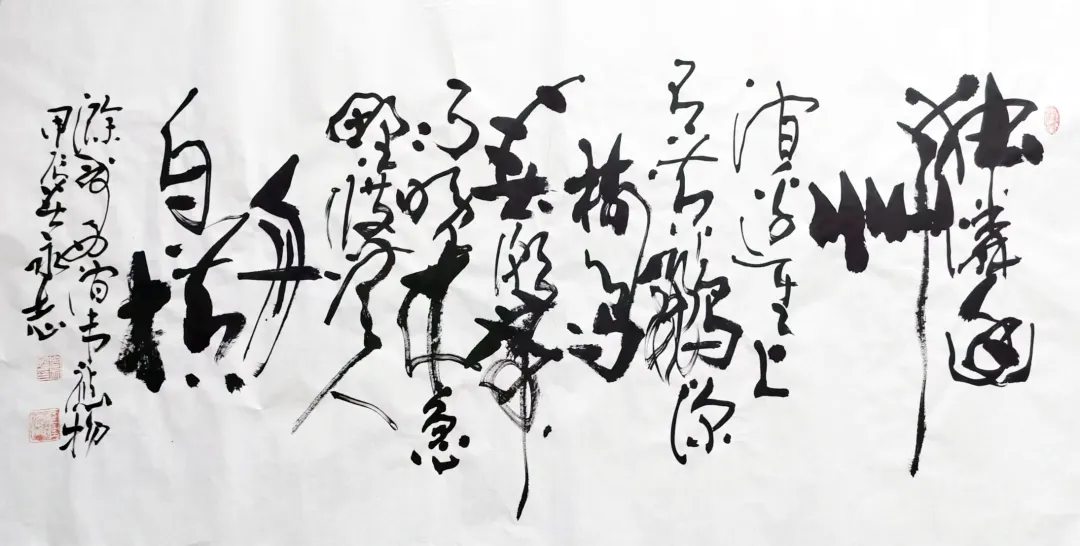 独憐幽
草
涧边生上
有黄鹂深
树鸣
春潮带
雨晚来急
野渡无人
舟
自横
滁州西涧韦应物
甲辰 永志